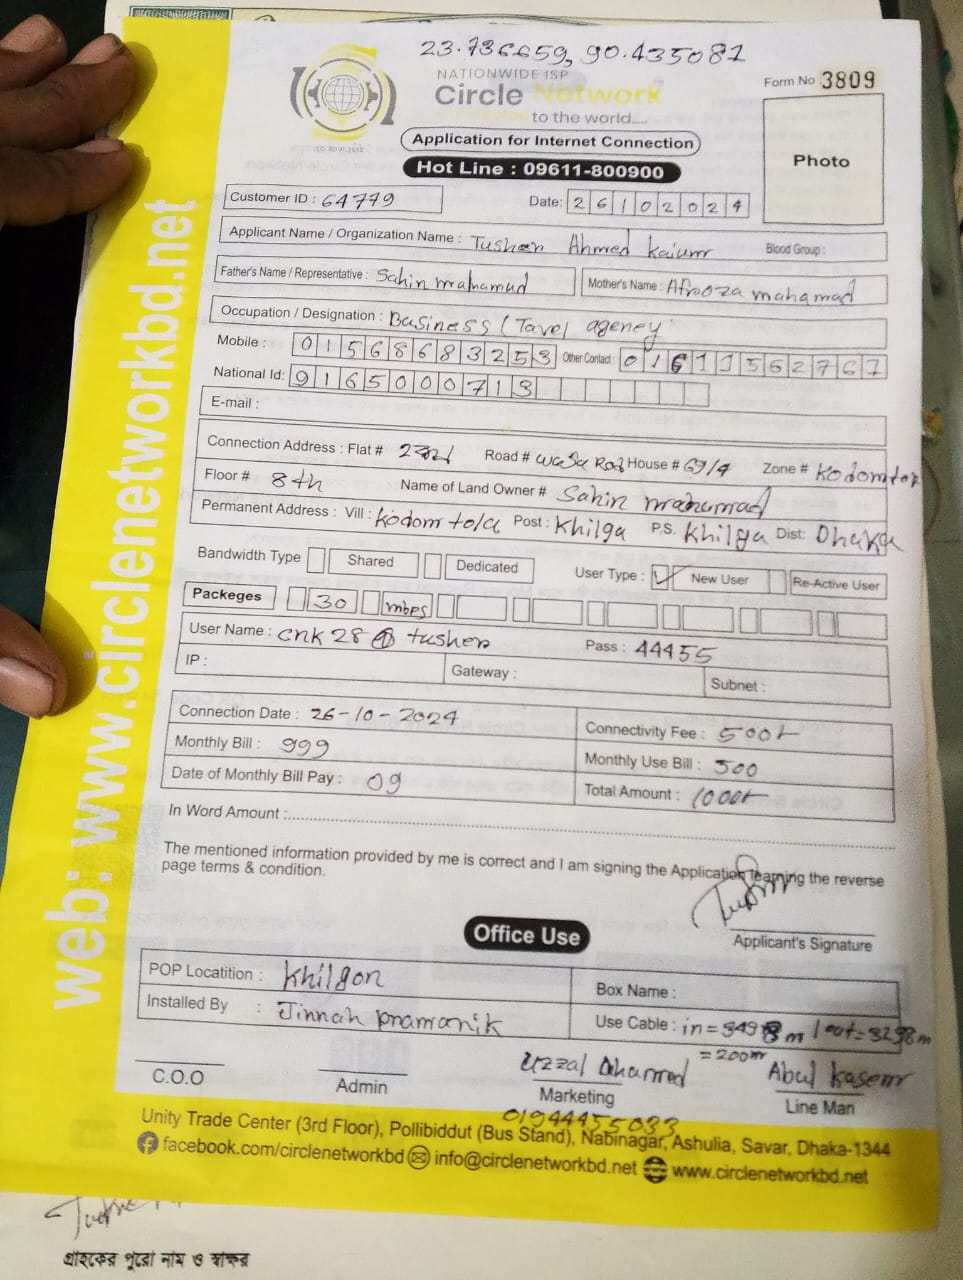 23.736659, 90.435081
NATIONWIDE ISP
Circle Network
to the world.....
Form No 3809
Application for Internet Connection
Hot Line : 09611-800900
Photo
Customer ID : 64779
Date: 26102024
Applicant Name / Organization Name : Tusher Ahmed kaium Blood Group :
Father's Name / Representative : Sahin mahamud Mother's Name : Afrooza mahamad
Occupation / Designation : Business (Tavel agency
Mobile : 01568683253 Other Contact : 01611562767
National Id: 9165000713
E-mail :
Connection Address : Flat # Road # wasa Road House # 69/4 Zone # Kodomtola
Floor # 8th Name of Land Owner # Sahin mahamad
Permanent Address : Vill : kodomtola Post : Khilga P.S. Khilga Dist: Dhaka
Bandwidth Type Shared Dedicated User Type : ✓ New User Re-Active User
Packeges 30 mbps
User Name : cnk28@tusher Pass : 44455
IP : Gateway : Subnet :
Connection Date : 26-10-2024 Connectivity Fee : 500/-
Monthly Bill : 999 Monthly Use Bill : 500
Date of Monthly Bill Pay : 09 Total Amount : 1000/-
In Word Amount :
The mentioned information provided by me is correct and I am signing the Application learning the reverse
page terms & condition.
Applicant's Signature
Office Use
POP Locatition : Khilgon Box Name :
Installed By : Jinnah pramanik Use Cable : in=3498m out=3298m
=200m
C.O.O Admin Uzzal Ahamed Marketing Abul kasem Line Man
01944455033
Unity Trade Center (3rd Floor), Pollibiddut (Bus Stand), Nabinagar, Ashulia, Savar, Dhaka-1344
facebook.com/circlenetworkbd info@circlenetworkbd.net www.circlenetworkbd.net
web: www.circlenetworkbd.net
গ্রাহকের পুরো নাম ও স্বাক্ষর